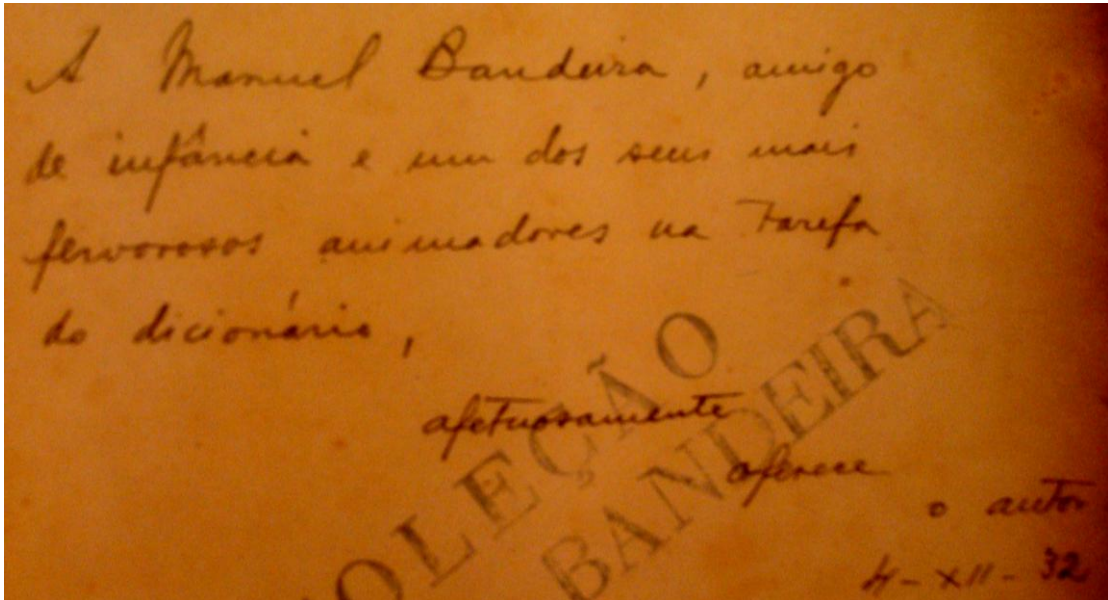 A Manuel Bandeira, amigo
de infância e um dos seus mais
fervorosos animadores na tarefa
do dicionário,
afetuosamente
oferece
o autor
4-XII-32
OLEÇÃO
BANDEIRA